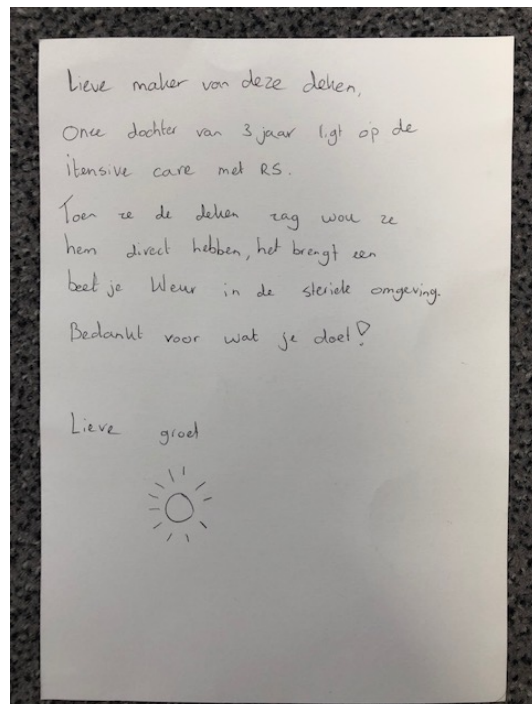 Lieve maker van deze deken,
Onze dochter van 3 jaar ligt op de
itensive care met RS.
Toen ze de deken zag wou ze
hem direct hebben, het brengt een
beetje kleur in de steriele omgeving.
Bedankt voor wat je doet!
Lieve groet